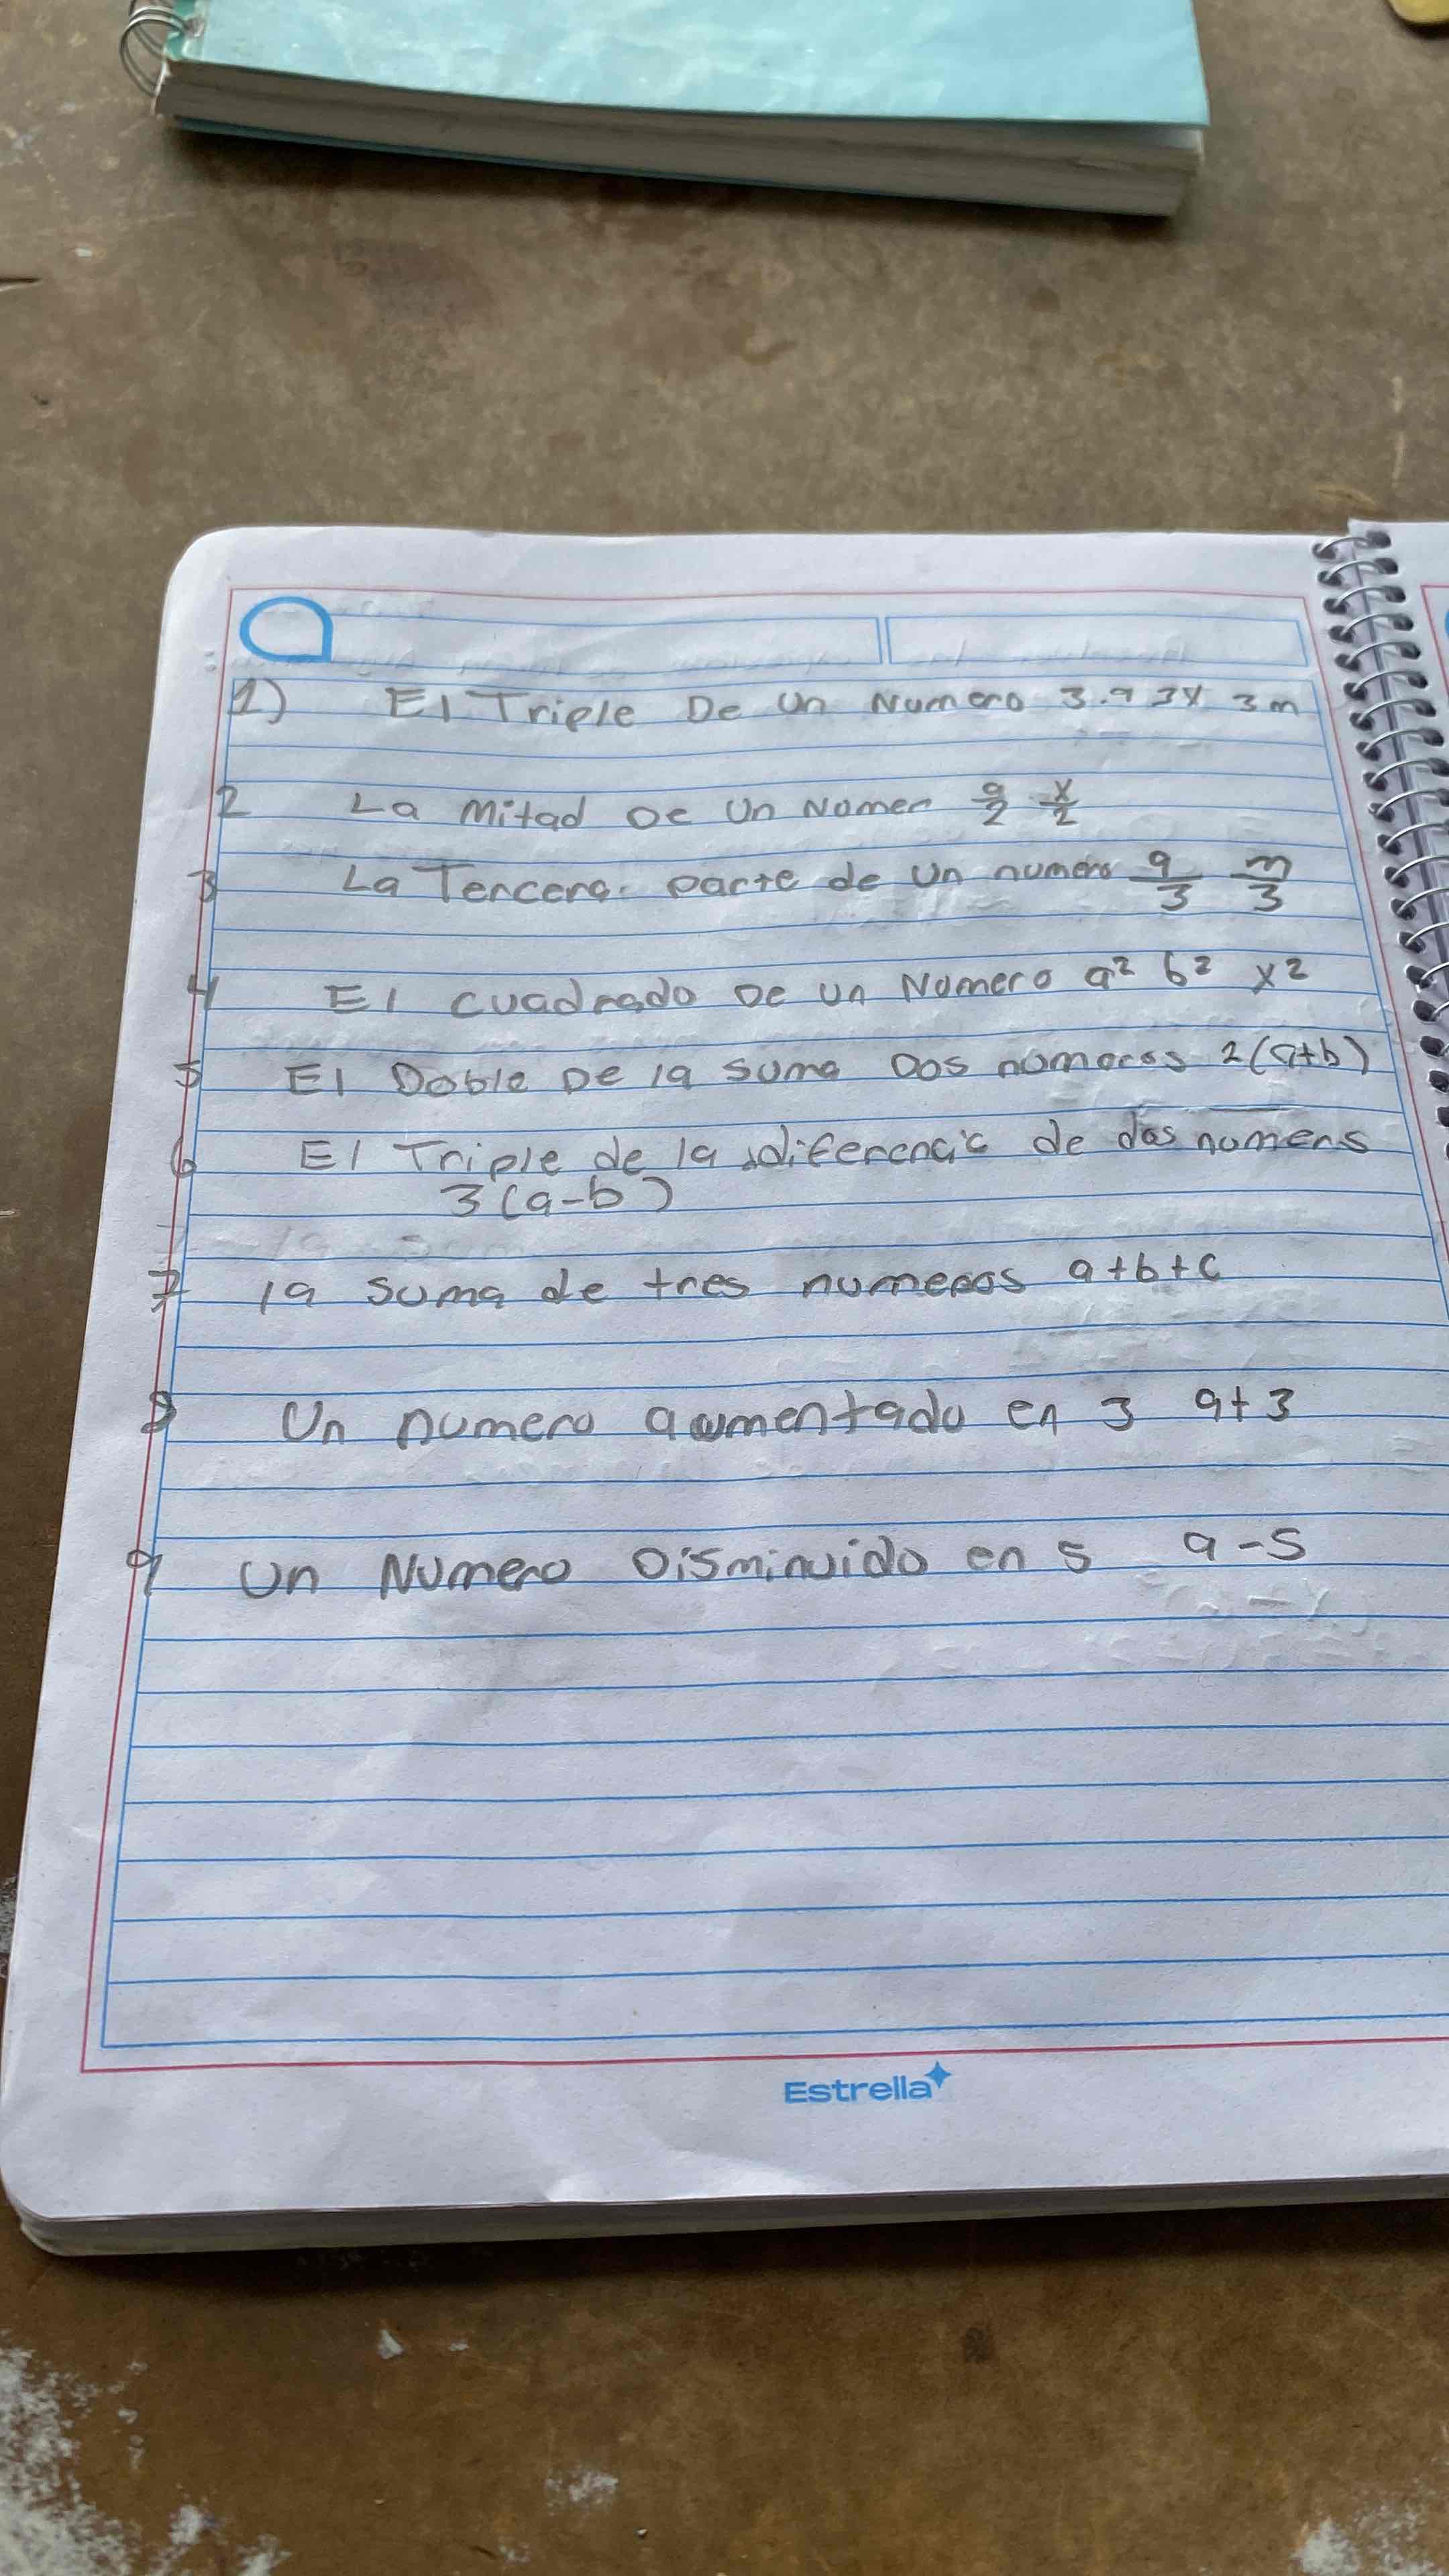 1) El Triple De Un Numero 3.a 3x 3m
2 La mitad De Un Nomer a/2 x/2
3 La Tercera. parte de un numero a/3 m/3
4 El cuadrado De un Nomero a² b² x²
5 El Doble De la suma Dos numeros 2(a+b)
6 El Triple de la diferencia de dos numeros
3(a-b)
7 la suma de tres numeros a+b+c
8 Un numero aumentado en 3 a+3
9 Un Numero Disminuido en 5 a-5
Estrella